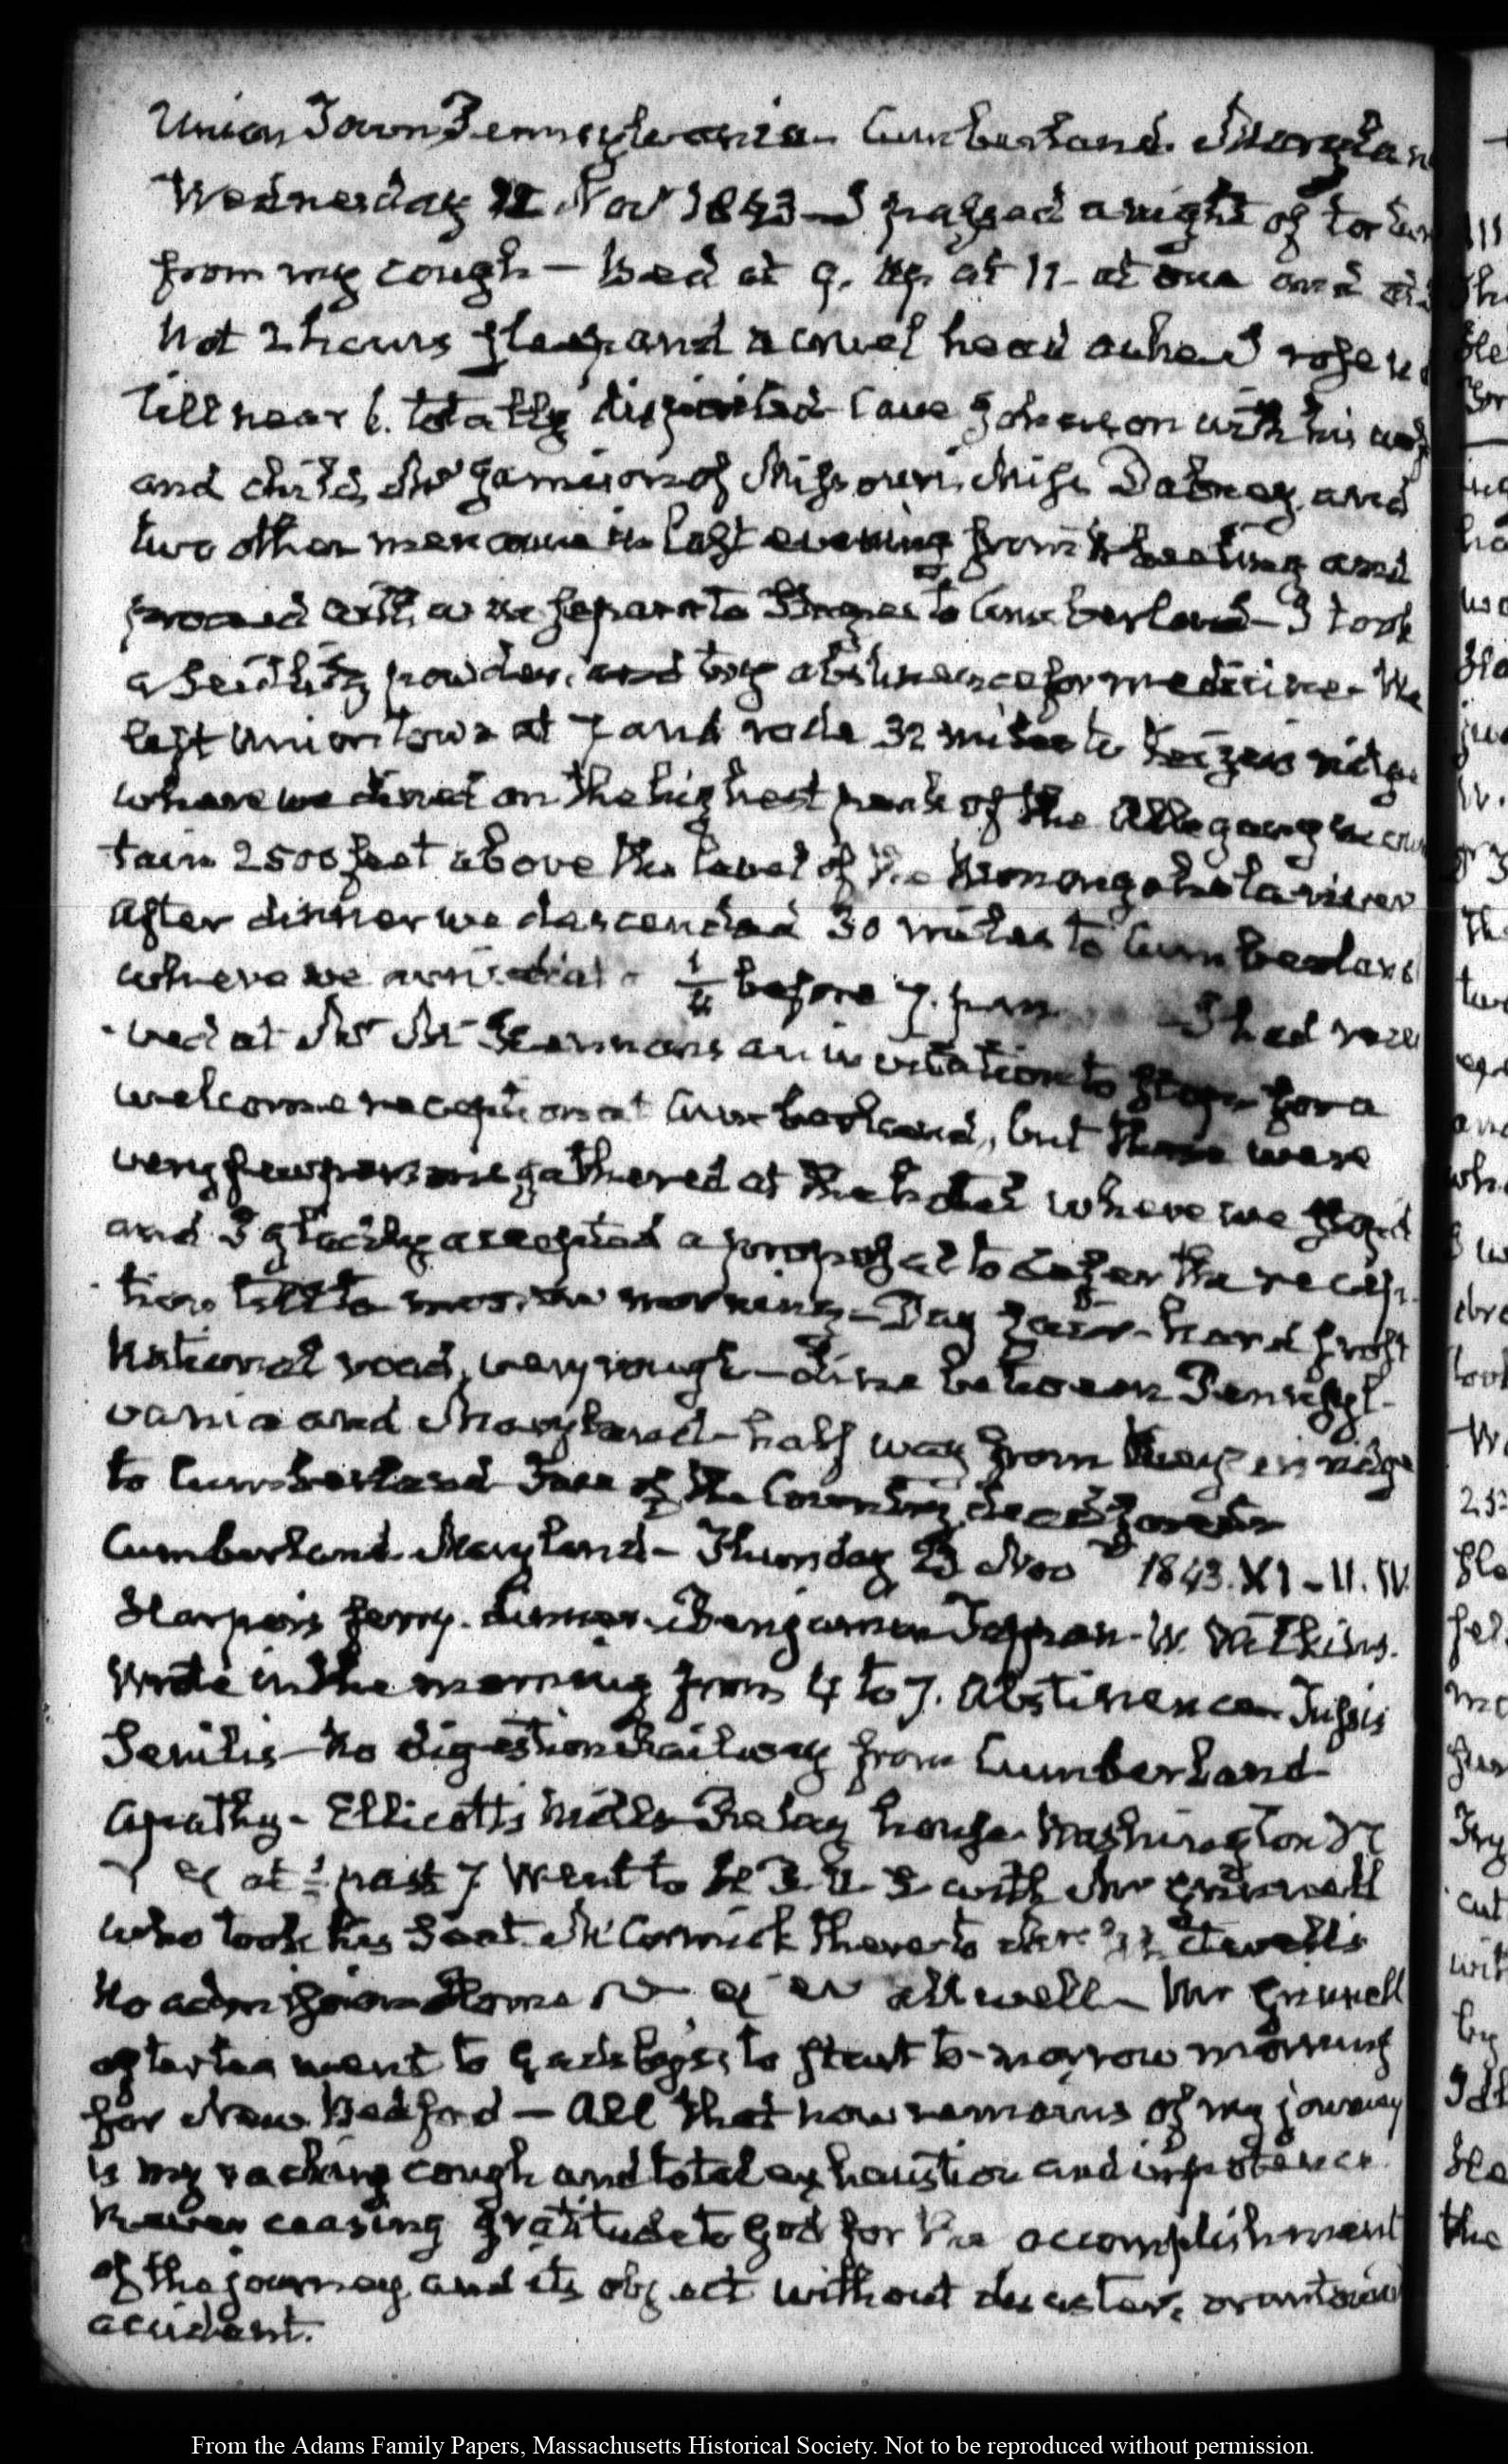 Union Town Pennsylvania - Cumberland. Marylan
Wednesday 22 Nov 1843 - I passed a night of tortur
from my cough - Bed at 9. up at 11 - at one and
Not 2 hours sleep and a cruel head ache I rose
till near 6. totally dispirited - Cave Johnson with his wif
and child, Mr Jamieson of Missouri, Miss Dabney and
two other men came in last evening from Wheeling and
proceed with us in separate Stages to Cumberland - I took
a Seidlitz powder, and try abstinence for medicine - We
left Uniontown at 7 and rode 32 miles to Keizers ridge
where we dined on the highest peak of the Allegany moun
tain 2500 feet above the level of the Monongahela river
After dinner we descended 30 miles to Cumberland
where we arrived at a 1/4 before 7. p.m. - I had recei
ved at Mr McKennans an invitation to stop for a
welcome reception at Cumberland, but there were
very few persons gathered at the hotel where we stop'd
and I gladly accepted a proposal to defer the recep-
tion till to-morrow morning - Day fair - hard frost
National road, very rough - Line between Pennsyl-
vania and Maryland - half way from Keizers ridge
to Cumberland - Face of the Country, dead forests
Cumberland. Maryland - Thursday 23 Nov 1843. XI - II. IV.
Harpers ferry. dinner. Benjamin Tappan - W. Wilkins.
Wrote in the morning from 4 to 7. Abstinence - Tussis
Senilis - No digestion Railway from Cumberland
Apathy - Ellicotts Mills - Relay house - Washington
at 1/2 past 7 Went to with Mr Grinnell
who took his Seat. McCormick there to
No admission - Home all well - Mr Grinnell
after tea went to Gadsby's, to start to-morrow morning
for New Bedford - All that now remains of my journey
is my racking cough and total exhaustion and impotence.
Never ceasing gratitude to God for the accomplishment
of the journey and its object without disaster, or untoward
accident.
From the Adams Family Papers, Massachusetts Historical Society. Not to be reproduced without permission.